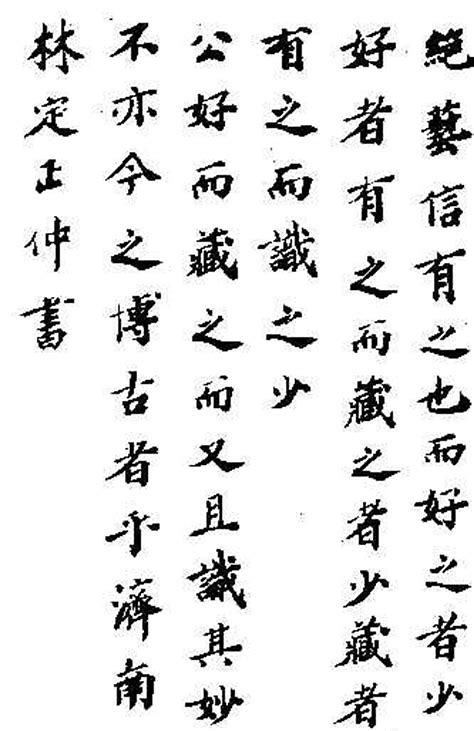 絕藝信有之也而好之者少
好者有之而藏之者少藏者
有之而識之少
公好而藏之而又且識其妙
不亦今之博古者乎濟南
林定正仲書